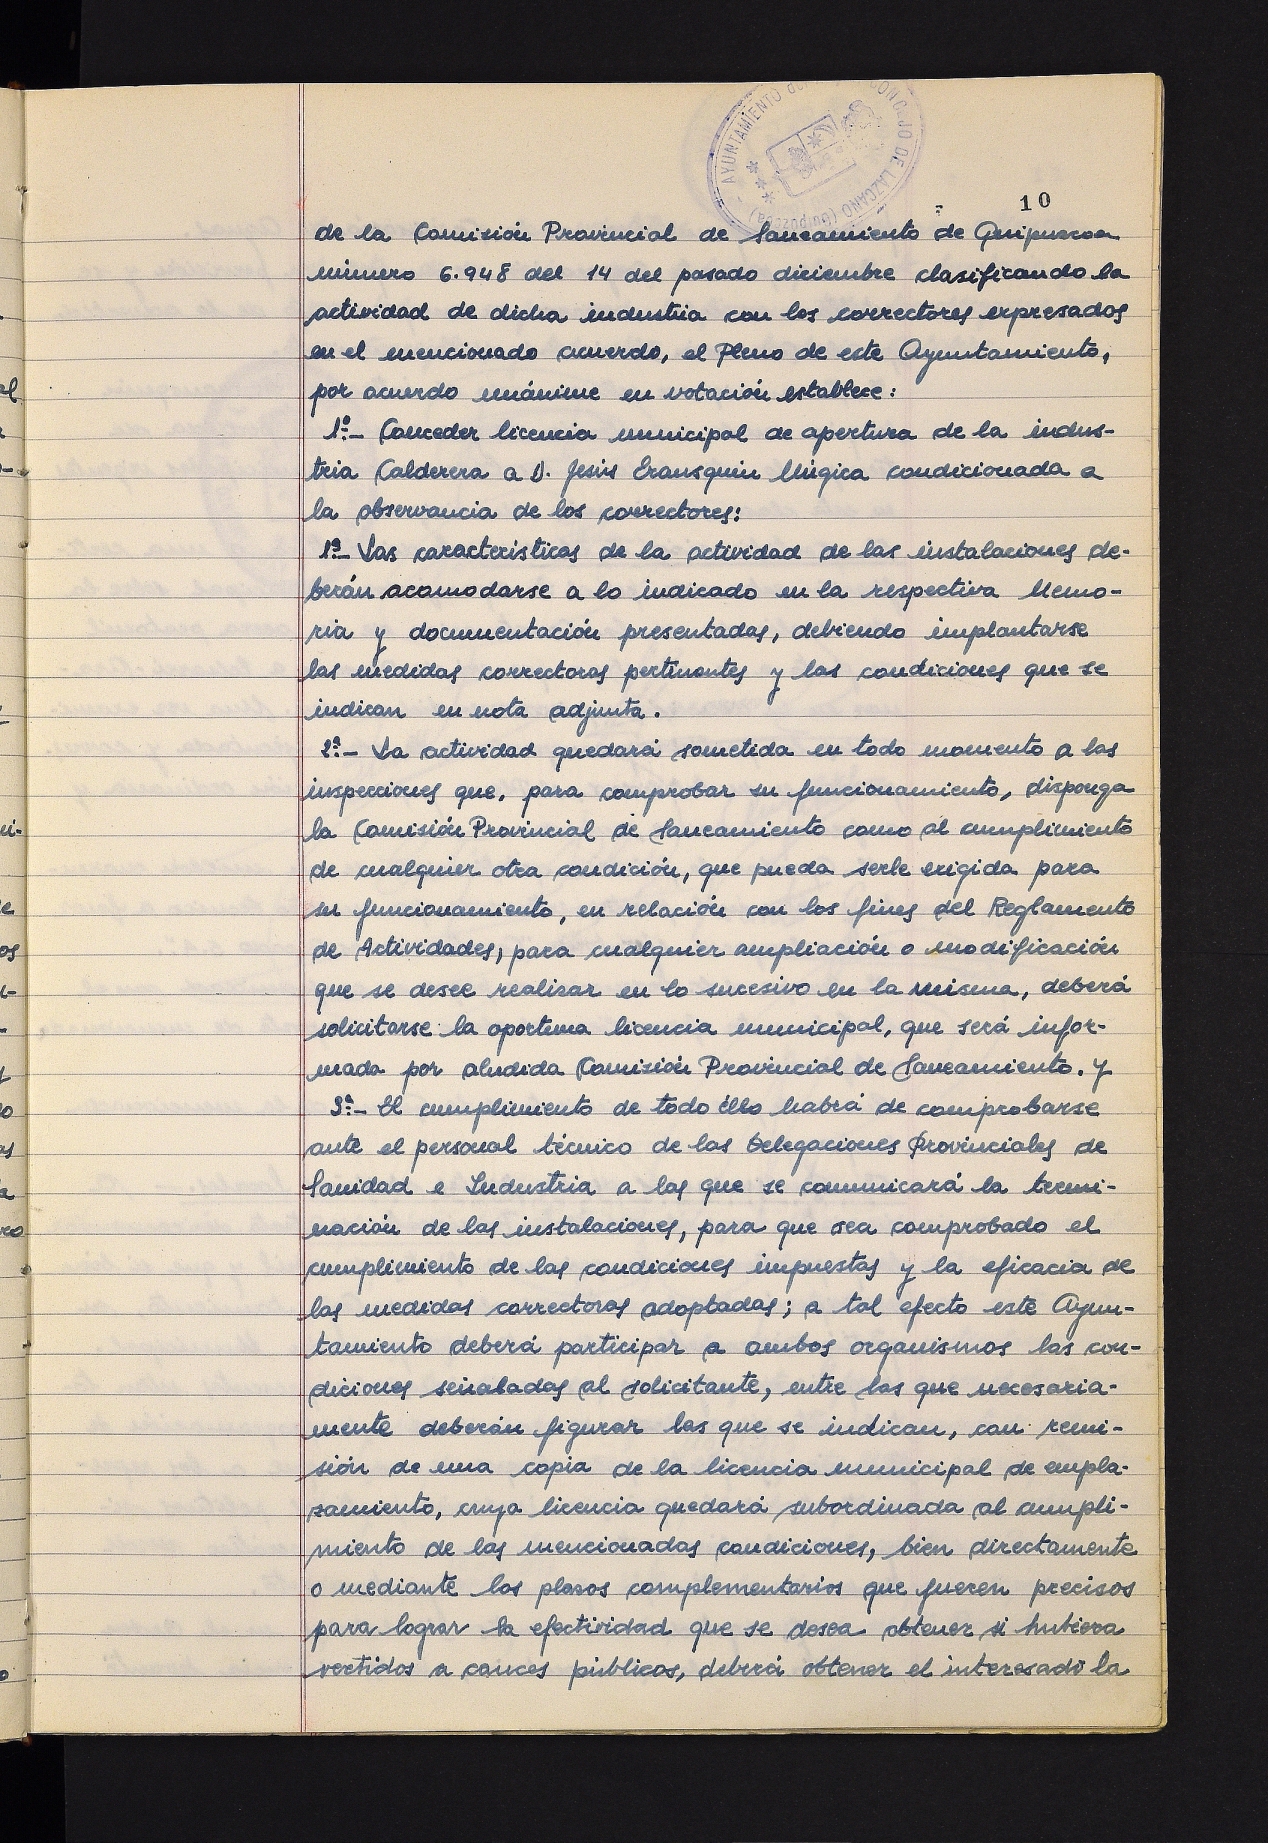 AYUNTAMIENTO del CONCEJO DE LAZCANO (Guipúzcoa)
10
de la Comisión Provincial de Saneamiento de Guipuzcoa
número 6.948 del 14 del pasado diciembre clasificando la
actividad de dicha industria con los correctores expresados
en el mencionado acuerdo, el Pleno de este Ayuntamiento,
por acuerdo unánime en votación establece:
1º.- Conceder licencia municipal de apertura de la indus-
tria Calderera a D. Jesús Eransquin Múgica condicionada a
la observancia de los correctores:
1ª.- Las características de la actividad de las instalaciones de-
berán acomodarse a lo indicado en la respectiva Memo-
ria y documentación presentadas, debiendo implantarse
las medidas correctoras pertinentes y las condiciones que se
indican en nota adjunta.
2ª.- La actividad quedará sometida en todo momento a las
inspecciones que, para comprobar su funcionamiento, disponga
la Comisión Provincial de Saneamiento como al cumplimiento
de cualquier otra condición, que pueda serle exigida para
su funcionamiento, en relación con los fines del Reglamento
de Actividades, para cualquier ampliación o modificación
que se desee realizar en lo sucesivo en la misma, deberá
solicitarse la oportuna licencia municipal, que será infor-
mada por aludida Comisión Provincial de Saneamiento. y
3ª.- El cumplimiento de todo éllo habrá de comprobarse
ante el personal técnico de las Delegaciones Provinciales de
Sanidad e Industria a las que se comunicará la termi-
nación de las instalaciones, para que sea comprobado el
cumplimiento de las condiciones impuestas y la eficacia de
las medidas correctoras adoptadas; a tal efecto este Ayun-
tamiento deberá participar a ambos organismos las con-
diciones señaladas al solicitante, entre las que necesaria-
mente deberán figurar las que se indican, con remi-
sión de una copia de la licencia municipal de empla-
zamiento, cuya licencia quedará subordinada al cumpli-
miento de las mencionadas condiciones, bien directamente
o mediante los plazos complementarios que fueren precisos
para lograr la efectividad que se desea obtener si hubiera
vertidos a cauces públicos, deberá obtener el interesado la